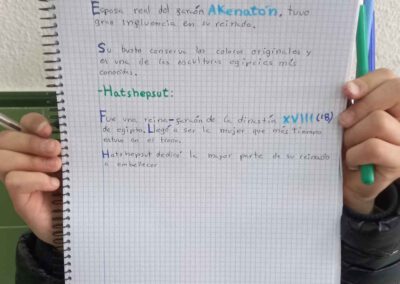 Esposa real del faraón AKenatón, tuvo
gran influencia en su reinado.
Su busto conserva los colores originales y
es una de las esculturas egipcias más
conocidas.
-Hatshepsut:
Fue una reina-faraón de la dinastía XVIII (18)
de egipto. Llegó a ser la mujer que más tiempo
estuvo en el trono.
Hatshepsut dedicó la mayor parte de su reinado
a embellecer